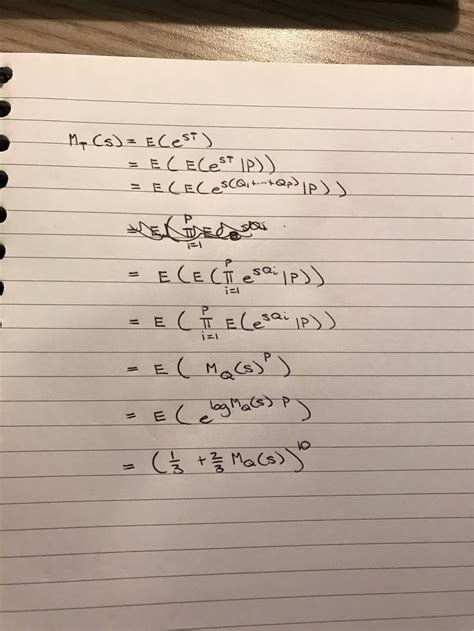 M_T(s) = E(e^{sT})
= E(E(e^{sT}|P))
= E(E(e^{s(Q_1+...+Q_P)}|P))
= E(E(∏_{i=1}^{P} e^{sQ_i}|P))
= E(∏_{i=1}^{P} E(e^{sQ_i}|P))
= E(M_Q(s)^P)
= E(e^{log M_Q(s) P})
= (1/3 + 2/3 M_Q(s))^{10}